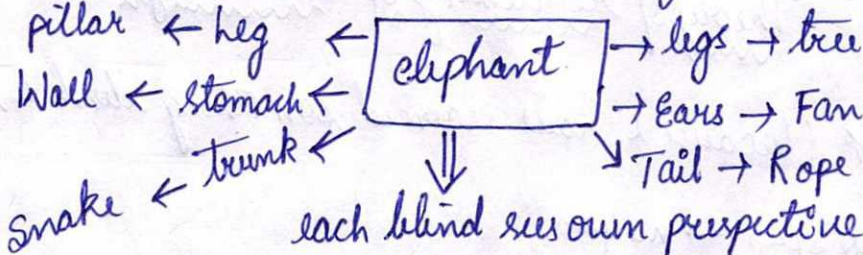 pillar ← Leg ← elephant → legs → tree
Wall ← stomach ← → Ears → Fan
Snake ← trunk ← ↘ Tail → Rope
⇓
each blind sees own prespective